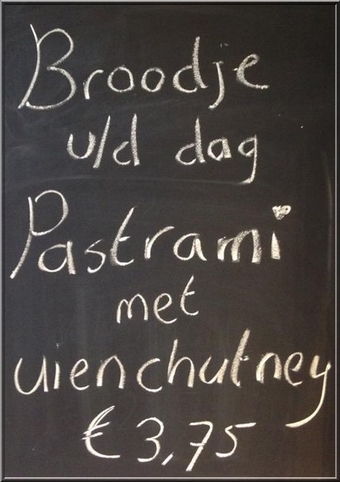 Broodje
v/d dag
Pastrami
met
uienchutney
€ 3,75